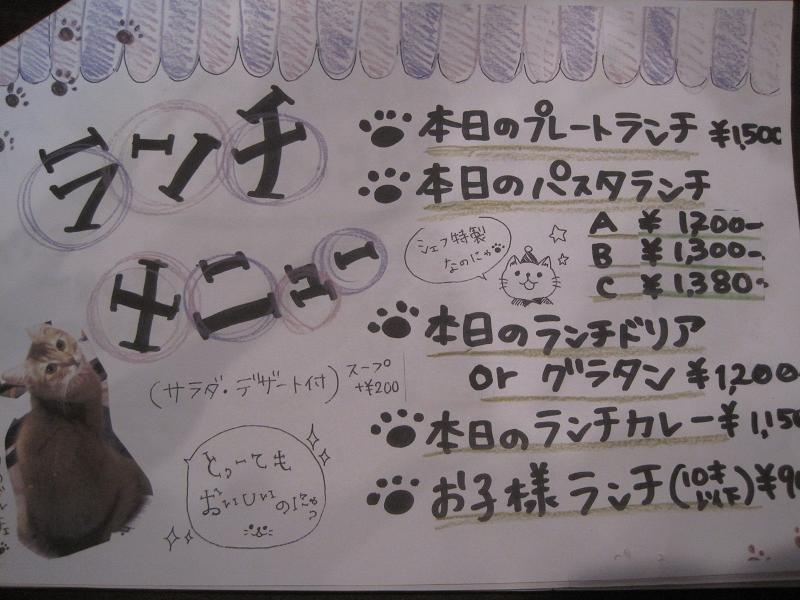 ランチ
メニュー
(サラダ・デザート付)
スープ
+¥200
とっても
おいしい
のにゃっ
本日のプレートランチ ¥1,500
本日のパスタランチ
A ¥1,200-
B ¥1,300-
C ¥1,380-
シェフ特製
なのにゃ
本日のランチドリア
or グラタン ¥1,200
本日のランチカレー ¥1,150
お子様ランチ(10才以下)